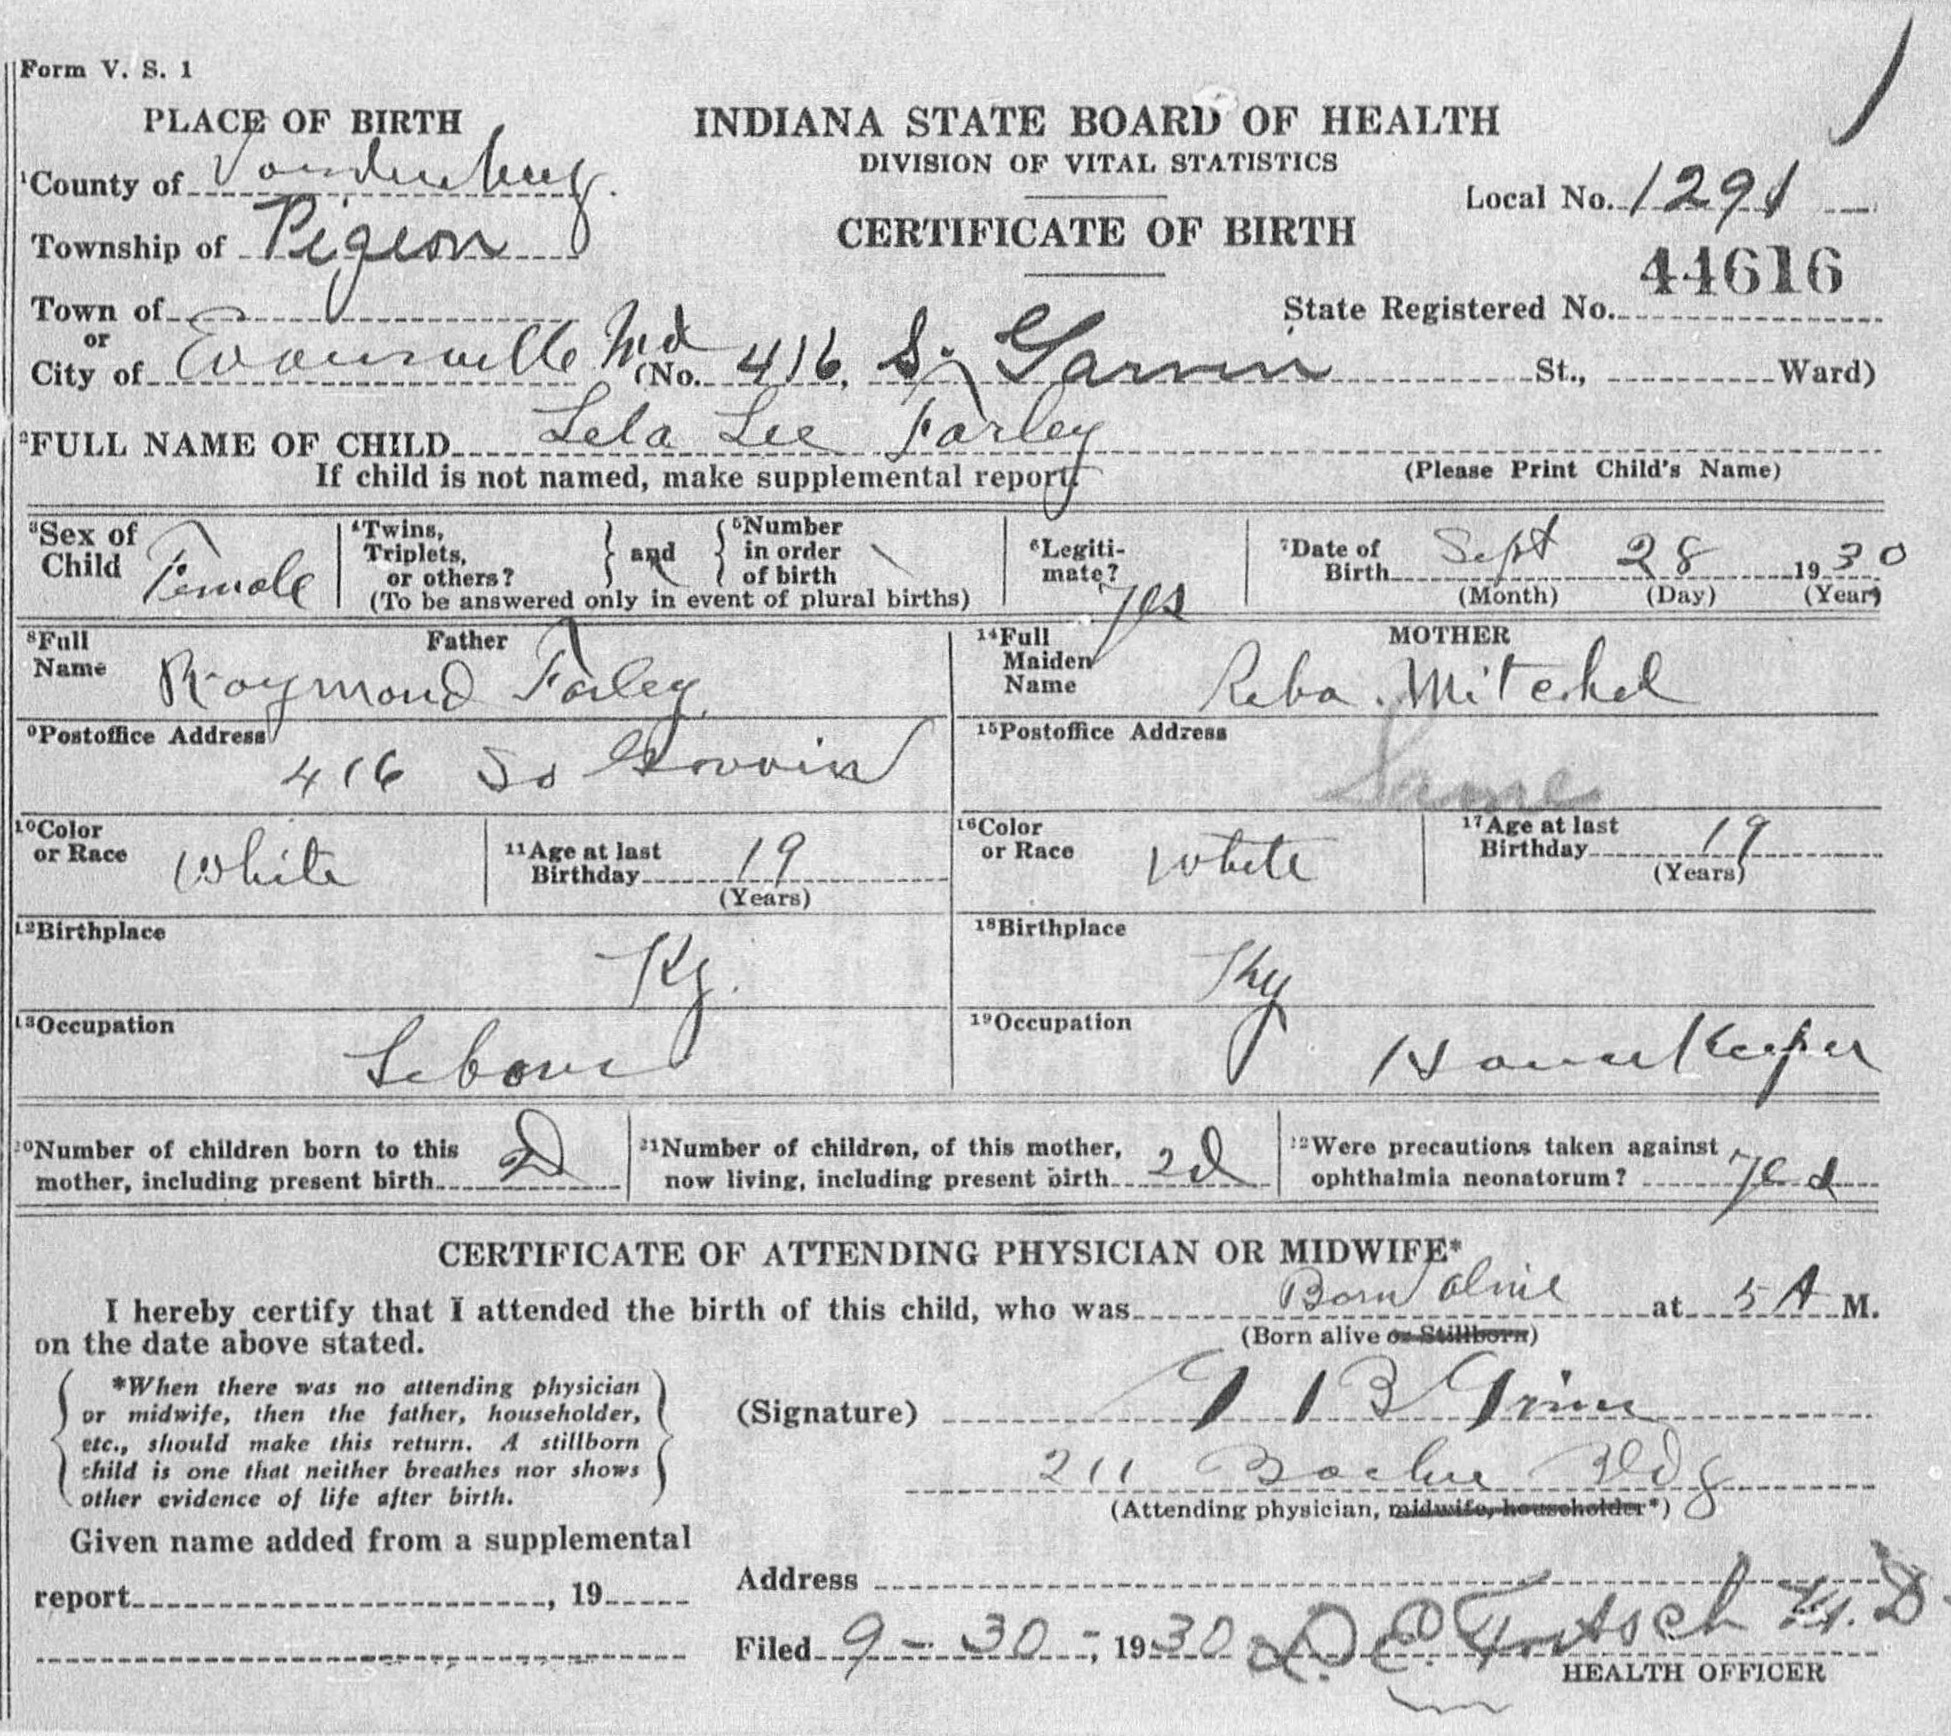 Form V. S. 1
PLACE OF BIRTH
INDIANA STATE BOARD OF HEALTH
DIVISION OF VITAL STATISTICS
1County of Vanderburg.
Local No. 1291
Township of Pigeon
CERTIFICATE OF BIRTH
44616
Town of
State Registered No.
or
City of Evansville Ind (No. 416, S. Garvin St., Ward)
2FULL NAME OF CHILD Lela Lee Farley
If child is not named, make supplemental report. (Please Print Child's Name)
3Sex of Child Female
4Twins, Triplets, or others? } and { 5Number in order of birth
(To be answered only in event of plural births)
6Legitimate? Yes
7Date of Birth Sept 28 1930
(Month) (Day) (Year)
8Full Name Father Raymond Farley
14Full Maiden Name MOTHER Reba Mitchel
9Postoffice Address 416 So Garvin
15Postoffice Address Same
10Color or Race White
11Age at last Birthday 19 (Years)
16Color or Race White
17Age at last Birthday 19 (Years)
12Birthplace Ky.
18Birthplace Ky
13Occupation
19Occupation HouseKeeper
20Number of children born to this mother, including present birth 2
21Number of children, of this mother, now living, including present birth 2d
22Were precautions taken against ophthalmia neonatorum? Yes
CERTIFICATE OF ATTENDING PHYSICIAN OR MIDWIFE*
I hereby certify that I attended the birth of this child, who was Born alive at 5 A M.
on the date above stated. (Born alive or Stillborn)
*When there was no attending physician
or midwife, then the father, householder,
etc., should make this return. A stillborn
child is one that neither breathes nor shows
other evidence of life after birth.
(Signature)
211 Bldg
(Attending physician, midwife, householder*)
Given name added from a supplemental
report , 19
Address
Filed 9-30-, 1930 D. E. M. D.
HEALTH OFFICER